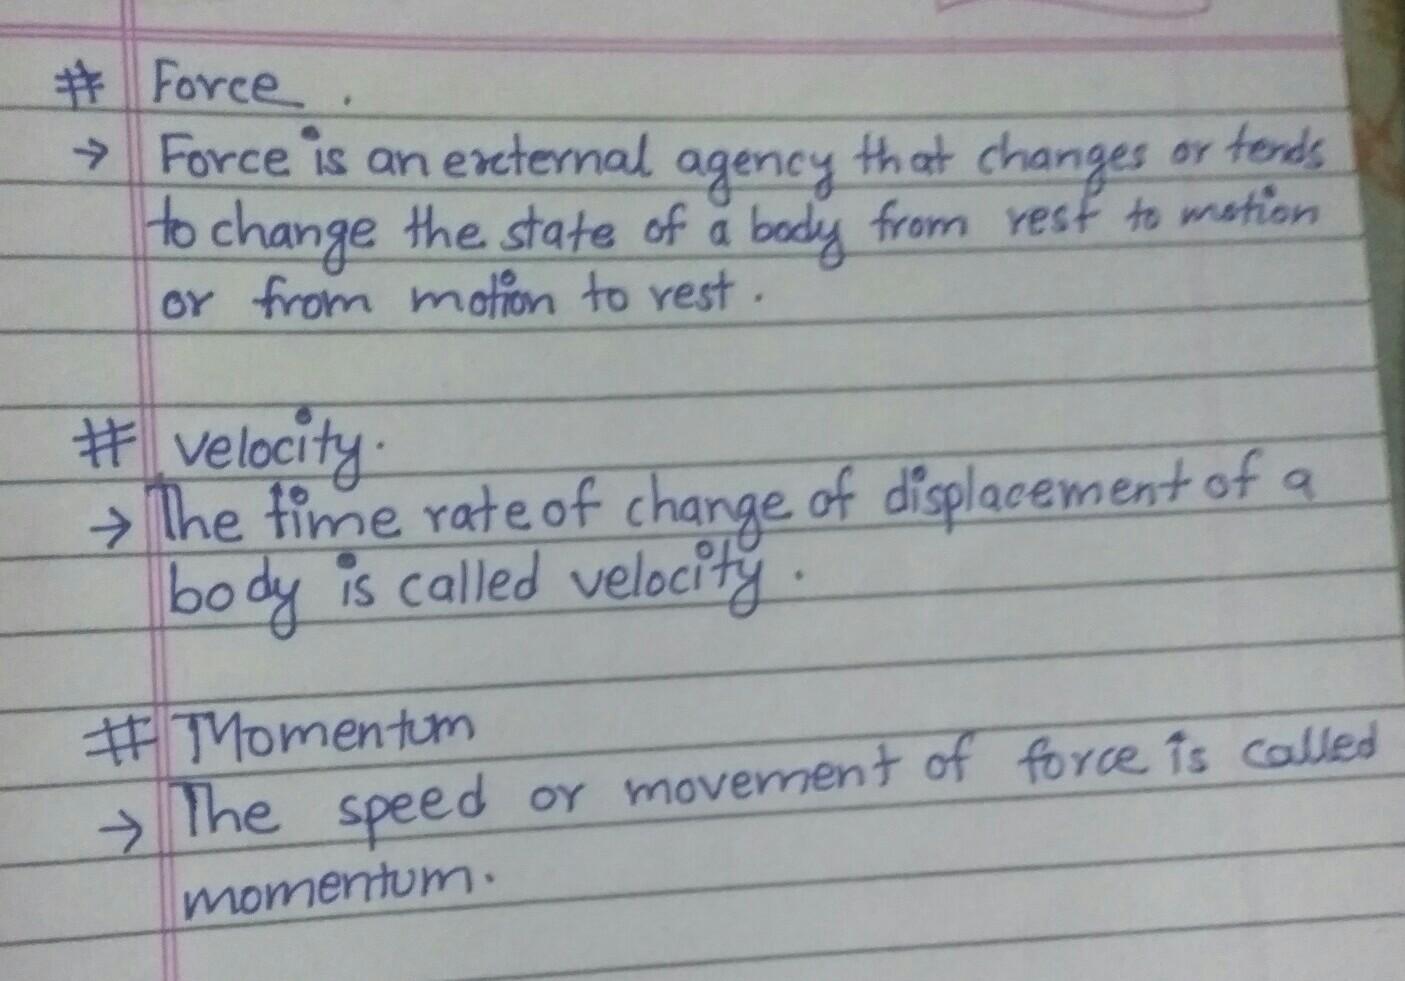 # Force.
→ Force is an external agency that changes or tends
to change the state of a body from rest to motion
or from motion to rest.
# velocity.
→ The time rate of change of displacement of a
body is called velocity.
# Momentum
→ The speed or movement of force is called
momentum.